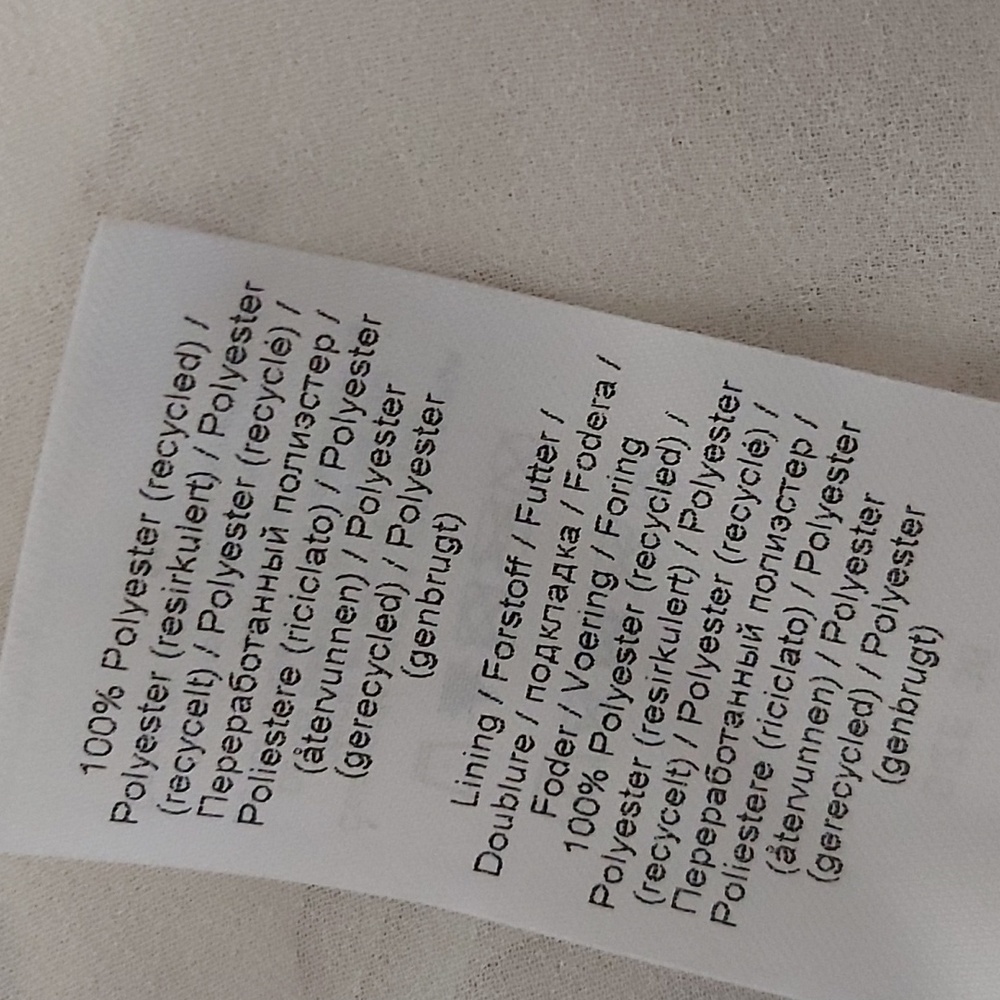 100% Polyester (recycled) /
Polyester (resirkulert) / Polyester
(recycelt) / Polyester (recyclé) /
Переработанный полиэстер /
Poliestere (riciclato) / Polyester
(återvunnen) / Polyester
(gerecycled) / Polyester
(genbrugt)
Lining / Forstoff / Futter /
Doublure / подкладка / Fodera /
Foder / Voering / Foring
100% Polyester (recycled) /
Polyester (resirkulert) / Polyester
(recycelt) / Polyester (recyclé) /
Переработанный полиэстер /
Poliestere (riciclato) / Polyester
(återvunnen) / Polyester
(gerecycled) / Polyester
(genbrugt)